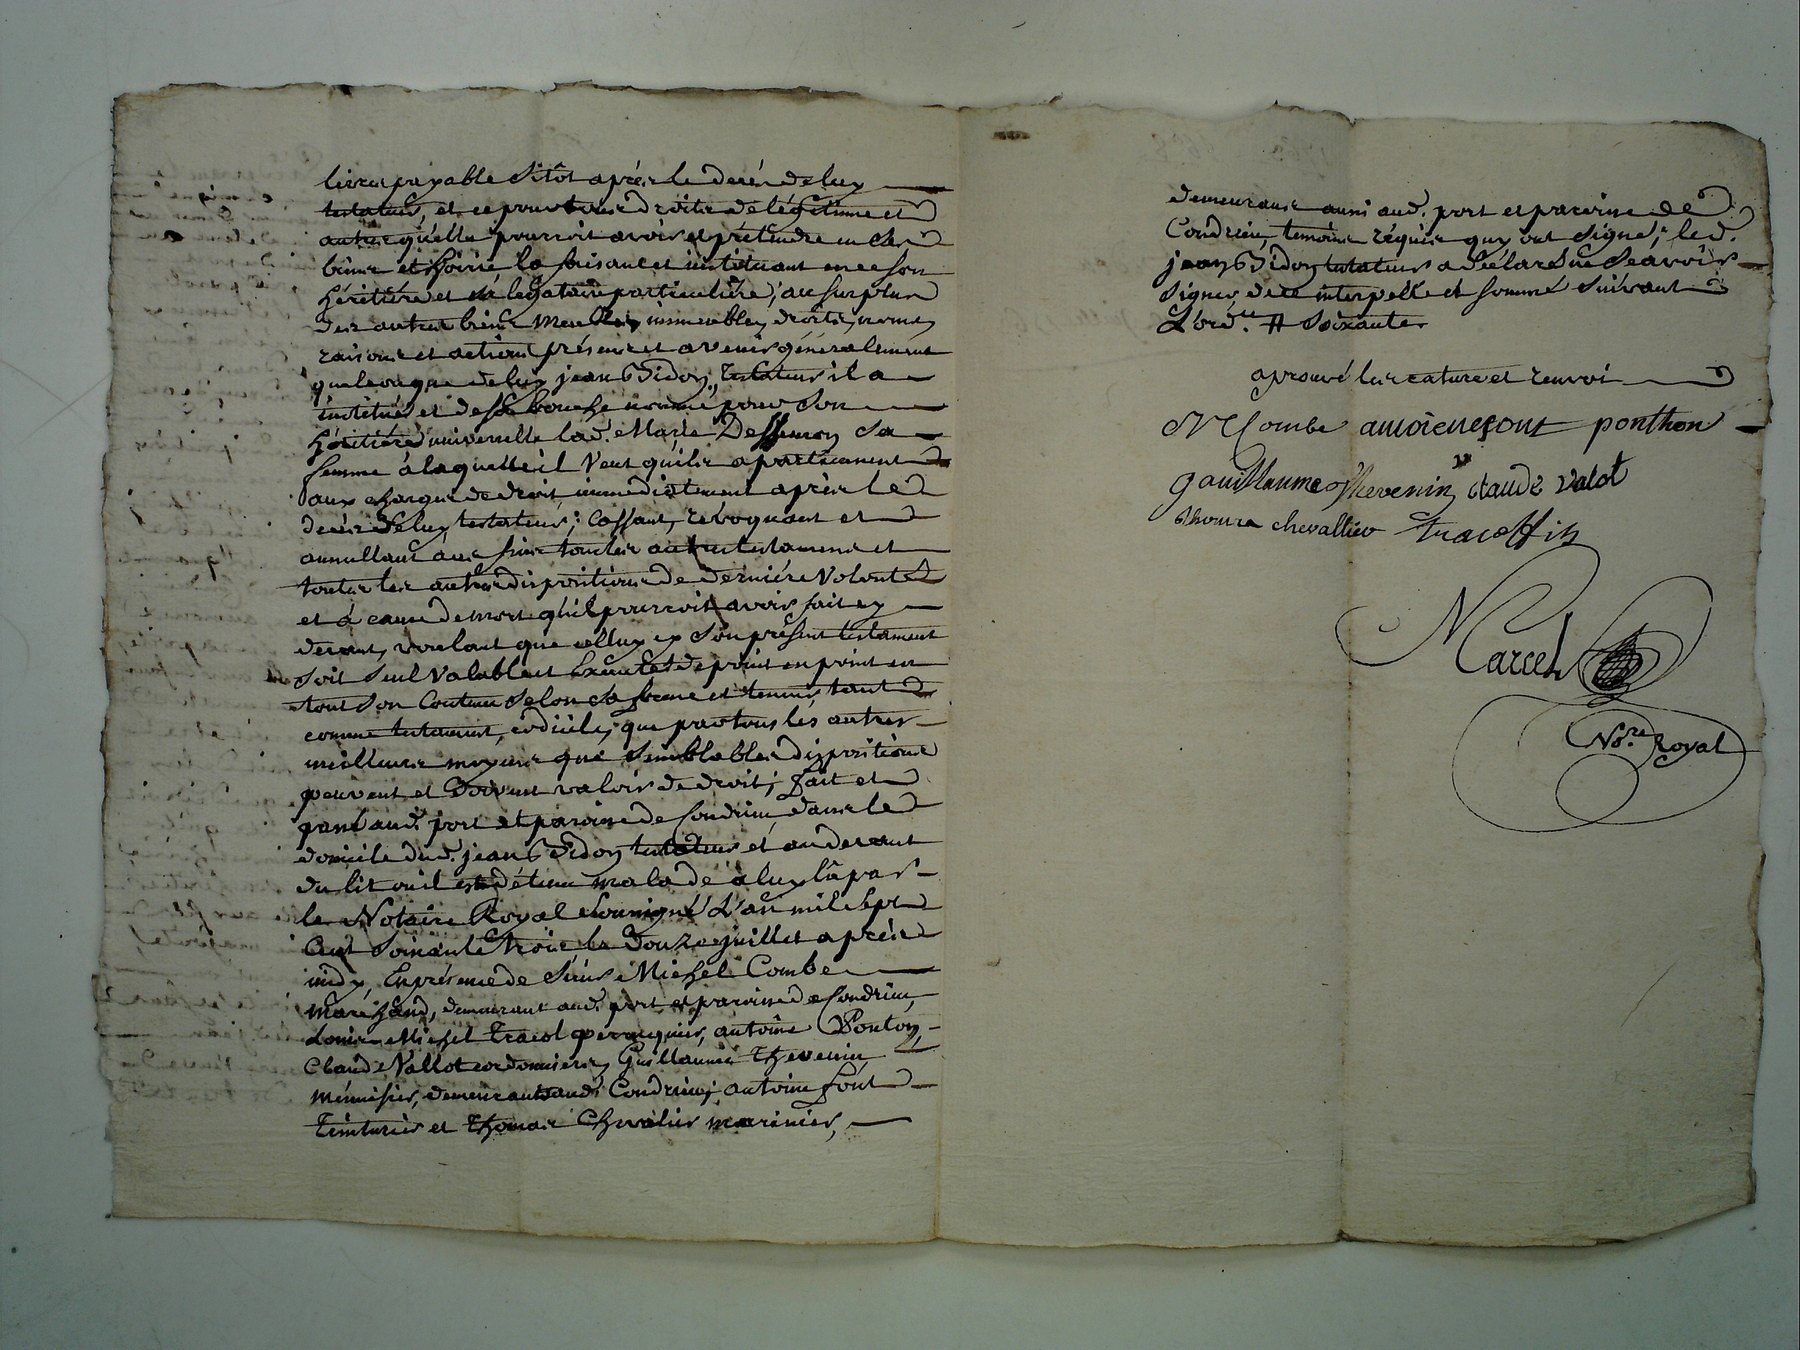 livres payable sitôt après le decés de luy
testateur, et ce pour tous droits de légitime et
autres qu'elle pourroit avoir et prétendre en ses
biens et hoirie la faisant et instituant en ce son
héritière et sa legataire particulière; au surplus
des autres biens meubles, immeubles, droits, noms,
raisons et actions présens et avenir généralement
quelconques de luy jean Bidon, testateur il a
institué et de sa bouche nommé pour son
héritière universelle lad. Marie Dessemon sa
femme à laquelle il veut qu'ils apartiennent
aux charges de droit immédiatement après le
decés de luy testateur; Cassant, révoquant et
annullant aux fins toutes autres testamens et
toutes les autres dispositions de dernière volonté
et à cause de mort qu'il pourroit avoir fait cy
devant, voulant que celluy cy son présent testament
soit seul valable et exécuté de point en point en
tout son contenu selon sa forme et teneur, tant
comme testament, codicile, que par tous les autres
meilleurs moyens que semblables dispositions
peuvent et doivent valoir de droit; fait et
passé aud. port et paroisse de Condrieu dans le
domicile dud. jean Bidon testateur et au devant
du lit ou il est détenu malade a luy lû par
le Notaire Royal soussigné L'an mil sept
cent soixante trois le douze juillet après
midy, En présence de sieur Michel Combe
marchand, demeurant aud. port et paroisse de Condrieu,
Louis Michel Tracol perruquier, antoine Ponton,
Claude Vallot cordonniers, Guillaume Thevenin
menuisier, demeurants aud. Condrieu, antoine font
Teinturier et Thomas Chevalier marinier,
demeurans aussi aud. port et paroisse de
Condrieu, temoins réquis quy ont signé; led.
jean Bidon testateur a déclaré ne Scavoir
signer de ce interpellé et sommé suivant
L'ord.ce # soixante
aprouvé la rature et renvoi
M Combe antoienefont ponthon
gauillaume Thevenin claude valot
thoma chevallier tracol
Marcel
No.re Royal